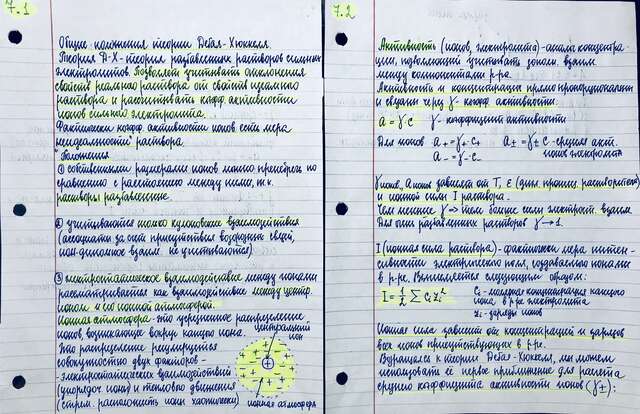 7.1
Общие положения теории Дебая-Хюккеля.
Теория Д-Х - теория разбавленных растворов сильных
электролитов. Позволяет учитывать отклонения
свойств реального раствора от свойств идеального
раствора и рассчитывать коэфф. активности
ионов сильного электролита.
Фактически коэфф. активности ионов есть мера
неидеальности раствора.
Положения
① собственными размерами ионов можно пренебречь по
сравнению с расстоянием между ними, т.к.
растворы разбавленные.
② учитываются только кулоновские взаимодействия
(ассоциаты за счёт присутствия водородных связей,
ион-дипольное взаим. не учитываются)
③ электростатическое взаимодействие между ионами
рассматривается как взаимодействие между центр.
ионом и его ионной атмосферой.
Ионная атмосфера - это усреднённое распределение
ионов, возникающее вокруг каждого иона.
центральный
ион
Это распределение регулируется
совокупностью двух факторов -
- электростатических взаимодействий
(упорядоч. ионов) и теплового движения
(стрем. расположить ионы хаотически)
ионная атмосфера
7.2
Активность (ионов, электролита) - аналог концентра-
ции, позволяющий учитывать взаим.
между компонентами р-ра.
Активность и концентрация прямо пропорциональны
и связаны через γ - коэфф. активности.
a = γ·c γ - коэффициент активности
Для ионов a₊ = γ₊·c₊ a± = γ±·c - средняя акт.
a₋ = γ₋·c₋ ионов электролита
γ ионов, a ионов зависят от T, ε (диэл. прониц. растворителя)
и ионной силы I раствора.
Чем меньше γ ⇒ тем больше силы электрост. взаим.
Для очень разбавленных растворов γ → 1.
I (ионная сила раствора) - фактически мера интен-
сивности электрического поля, создаваемого ионами
в р-ре. Вычисляется следующим образом:
I = ½ ∑ Cᵢ zᵢ² Cᵢ - молярная концентрация каждого
иона в р-ре электролита
zᵢ - заряды ионов
Ионная сила зависит от концентраций и зарядов
всех ионов присутствующих в р-ре.
Возвращаясь к теории Дебая-Хюккеля, мы можем
использовать её первое приближение для расчёта
среднего коэффициента активности ионов (γ±):